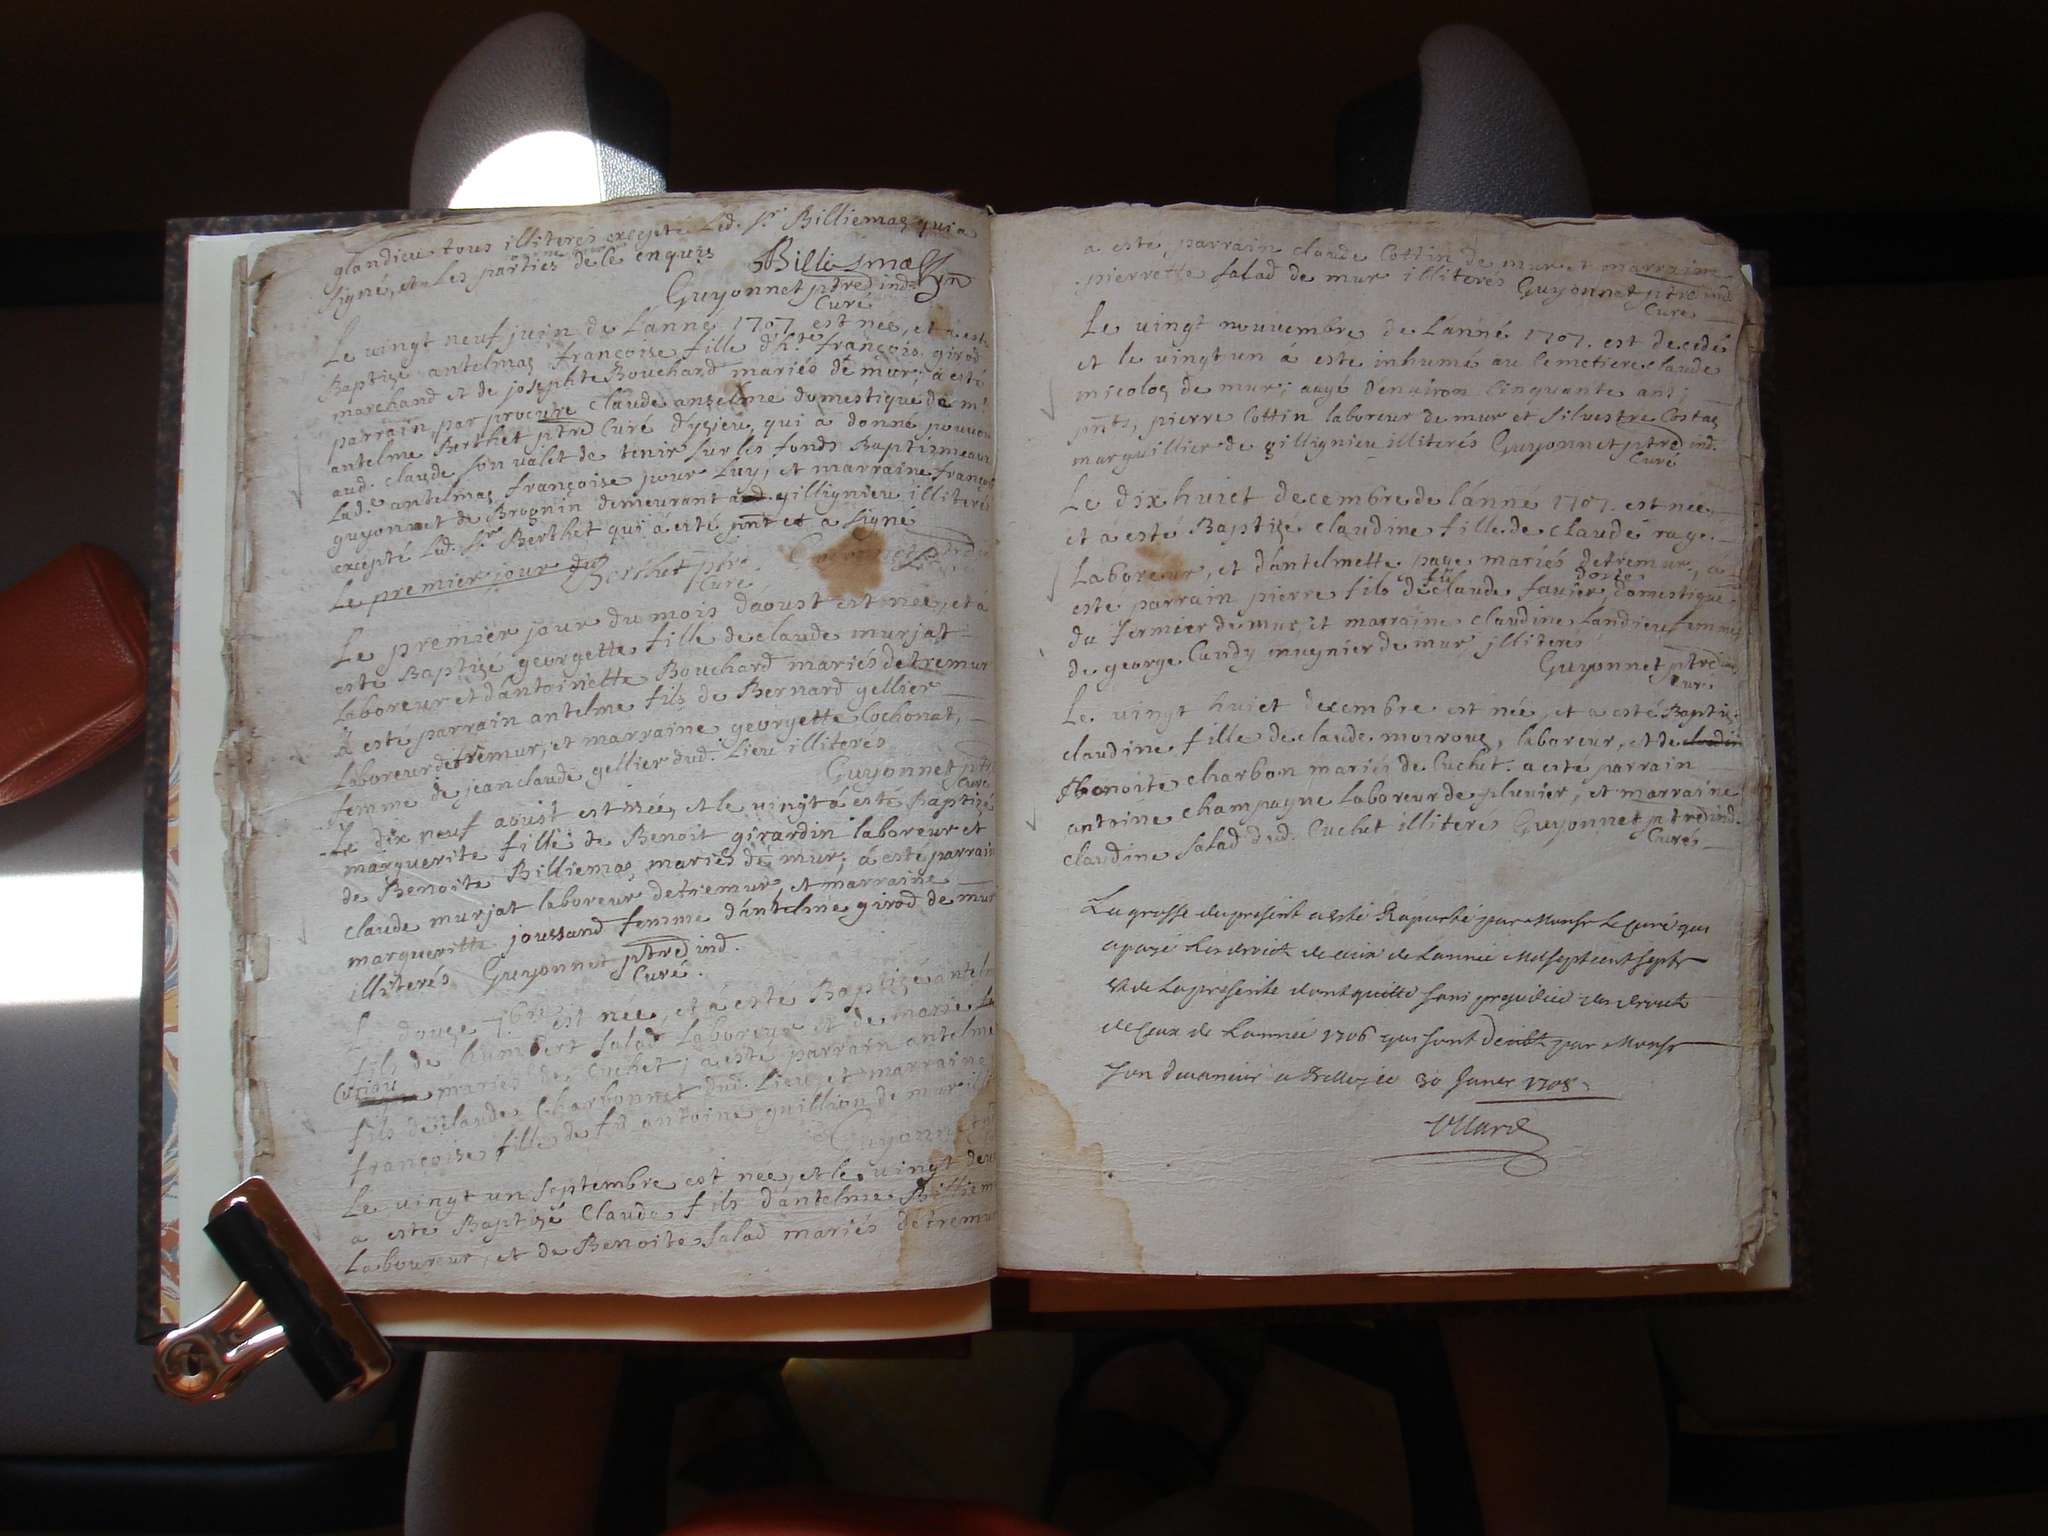 glandieu tous illiterés excepte led. Sr. Billiemaz qui a
signé, et les parties de ce enquis Billiemaz
Guyonnet ptre ind.
Curé
Le vingt neuf juin de Lanné 1707 est née, et a esté
Baptizé antelmaz françoise fille d'h.te françois girod
marchand et de josephte Bouchard mariés de mur; à esté
parrain par procure claude anselme domestique de mr
antelme Berthet ptre Curé d'yzieu, qui à donné pouvoir
aud. claude son valet de tenir sur les fonds Baptismeaux
lad.e antelmaz françoise pour luy, et marraine françoise
guyonnet de Brognin demeurant a gillignieu illiterés
excepté led. Sr Berthet qui a esté pnt et a signé
Le premier jour du Berthet ptre
Curé
Le premier jour du mois d'aoust est née, et à
esté Baptizé georgette fille de claude murjat
laboreur et d'antoinette Bouchard mariés de tremur
à esté parrain antelme fils de Bernard gellier
laboreur de tremur, et marraine georgette Cochonat,
femme de jeanclaude gellier dud. Lieu illiterés
Guyonnet ptre
Curé
Le dix neuf aoust est née, et le vingt à esté Baptizé
marguerite fille de Benoit girardin laboreur et
de Benoite Billiemaz mariés de mur; à esté parrain
claude murjat laboreur de tremur, et marraine
margueritte joussand femme d'antelme girod de mur
illiterés Guyonnet ptre ind.
Curé.
Le douze 7bre est née, et à esté Baptizé antelm
fils de humbert salad laboreur et de marie
mariés de Cuchet; a esté parrain antelme
fils de claude Charbonnet dud. Lieu, et marraine
françoise fille de fû antoine quillion de mur
Guyonnet
Le vingt un septembre est née, et le vingt deux
a esté Baptizé Claude fils d'antelme Billiem
laboureur, et de Benoite salad mariés de tremur
a esté parrain claude Cottin de mur et marraine
pierrette salad de mur illiterés Guyonnet ptre ind.
Curé
Le vingt nouvembre de Lánné 1707. est decedé
et le vingt un á este inhumé au Cemetiere claude
nicoloz de mur; aagé d'environ Cinquante ans;
pnts, pierre Cottin laboreur de mur et silvestre Costaz
marguillier de gillignieu illiterés Guyonnet ptre ind.
Curé
Le dix huict decembre de lánné 1707. est née
et á esté Baptizé claudine fille de claude rage
Laboreur, et d'antelmette page mariés de tremur, á
esté parrain pierre fils de fû claude fauier domestique
du fermier de mur, et marraine claudine Landieu femme
de george Candy mugnier de mur illiterés
Guyonnet ptre ind
Curé
Le vingt huict decembre est née, et a esté Baptizé
claudine fille de claude moiroud, laboreur, et de claudine
benoite charbon mariés de Cuchet. a esté parrain
antoine champagne laboreur de pluvier, et marraine
claudine salad dud. Cuchet illiteres Guyonnet ptre ind.
Curé
La grosse du present a esté Raporté par Monsr le Curé qui
a payé les droict de ceux de Lannée Mil sept cent sept
et de la presente dont quitte sans prejudice des droict
de Ceux de Lannée 1706 qui sont deubt par Monsr
son devancier a Belley ce 30 Janer 1708